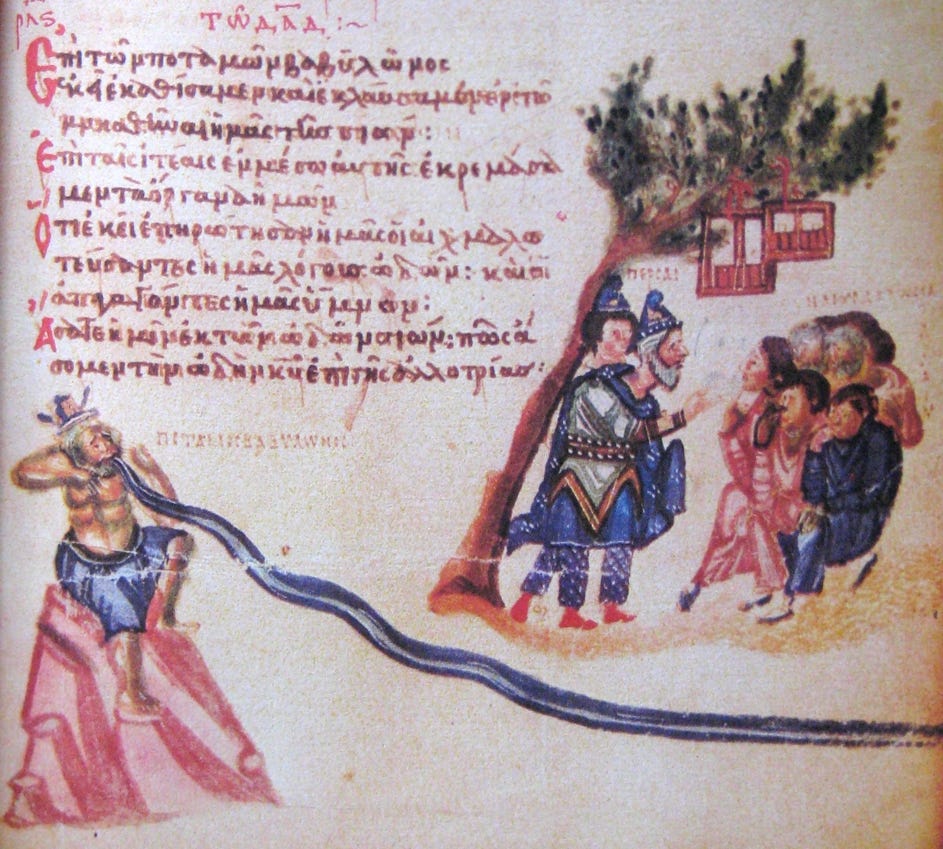 τῶ δᾱδ :~
Ἐπὶ τῶν ποταμῶν βαβυλῶνος
ἐκεῖ ἐκαθίσαμεν καὶ ἐκλαύσαμεν ἐν τῶ
μνησθῆναι ἡμᾶς τῆς σιών:
Ἐπὶ ταῖς ἰτέαις ἐν μέσω αὐτῆς ἐκρεμάσα
μεν τὰ ὄργανα ἡμῶν
Ὅτι ἐκεῖ ἐπηρώτησαν ἡμᾶς οἱ αἰχμαλω
τεύσαντες ἡμᾶς λόγους ὠδῶν: καὶ οἱ
ἀπαγαγόντες ἡμᾶς ὕμνον:
Ἄσατε ἡμῖν ἐκ τῶν ὠδῶν σιών: πῶς ἄ
σομεν τὴν ὠδὴν κῡ ἐπὶ γῆς ἀλλοτρίας:
ΠΕΡCΑΙ